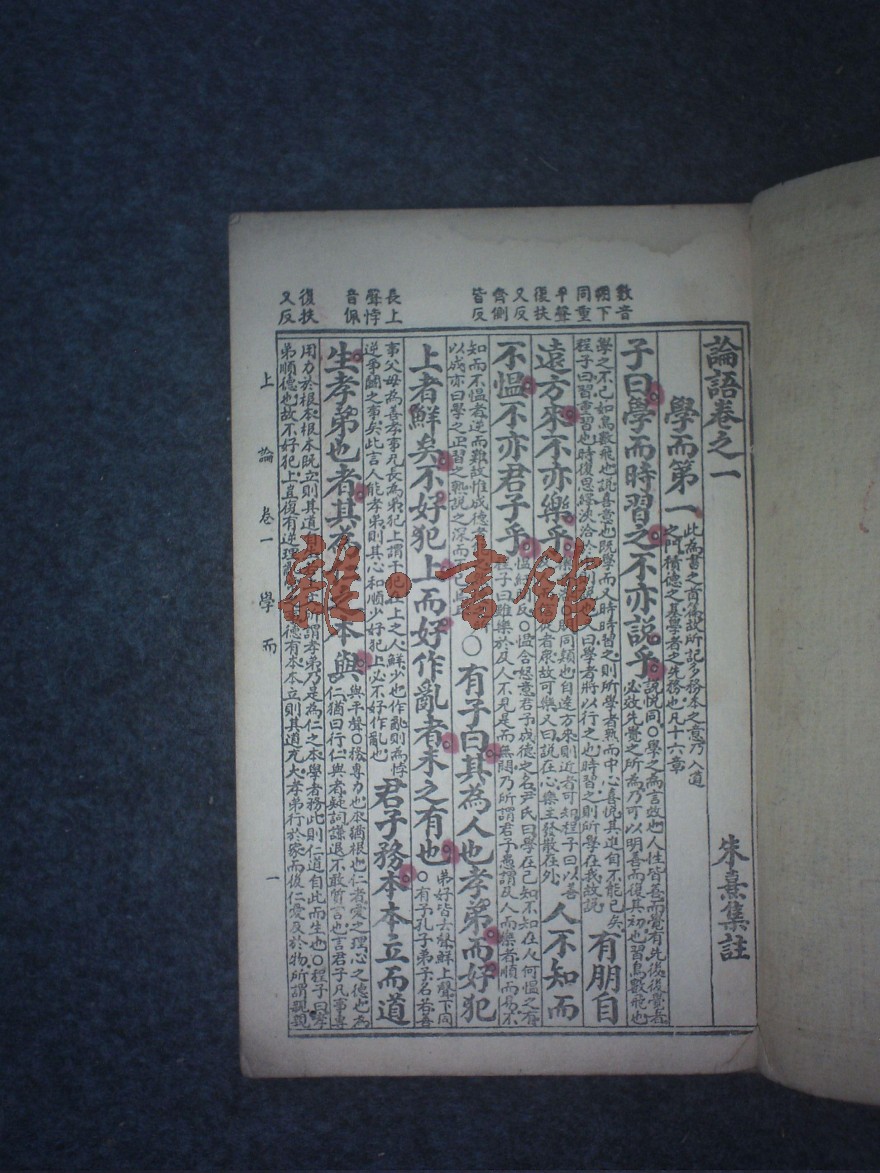 數音
朔下
同重
平聲
復扶
又反
齊側
皆反
長上
聲悖
音佩
復扶
又反
論語卷之一 朱熹集註
學而第一
此為書之首篇故所記多務本之意乃入道
之門積德之基學者之先務也凡十六章
子曰學而時習之不亦說乎
說悅同○學之為言效也人性皆善而覺有先後後覺者
必效先覺之所為乃可以明善而復其初也習鳥數飛也
學之不已如鳥數飛也說喜意也既學而又時時習之則所學者熟而中心喜悅其進自不能已矣
程子曰習重習也時復思繹浹洽於中則說也又曰學者將以行之也時習之則所學在我故說
有朋自
遠方來不亦樂乎
朋同類也自遠方來則近者可知程子曰以善
者眾故可樂又曰說在心樂主發散在外
人不知而
不慍不亦君子乎
慍紆問反○慍含怒意君子成德之名尹氏曰學在己知不知在人何慍之有
程子曰雖樂於及人不見是而無悶乃所謂君子愚謂及人而樂者順而易不
知而不慍者逆而難故惟成德者
以成亦曰學之正習之熟說之深而不已
○有子曰其為人也孝弟而好犯
上者鮮矣不好犯上而好作亂者未之有也
弟好皆去聲鮮上聲下同
○有子孔子弟子名若善
事父母為孝善事兄長為弟犯上謂干犯在上之人鮮少也作亂則為悖
逆爭鬭之事矣此言人能孝弟則其心和順少好犯上必不好作亂也
君子務本本立而道
生孝弟也者其為仁之本與
與平聲○務專力也本猶根也仁者愛之理心之德也為
仁猶曰行仁與者疑詞謙退不敢質言也言君子凡事專
用力於根本根本既立則其道自生若上文所謂孝弟乃是為仁之本學者務此則仁道自此而生也○程子曰孝
弟順德也故不好犯上豈復有逆理亂常之事德有本本立則其道充大孝弟行於家而後仁愛及於物所謂親親
上論 卷一 學而 一
雜·書館